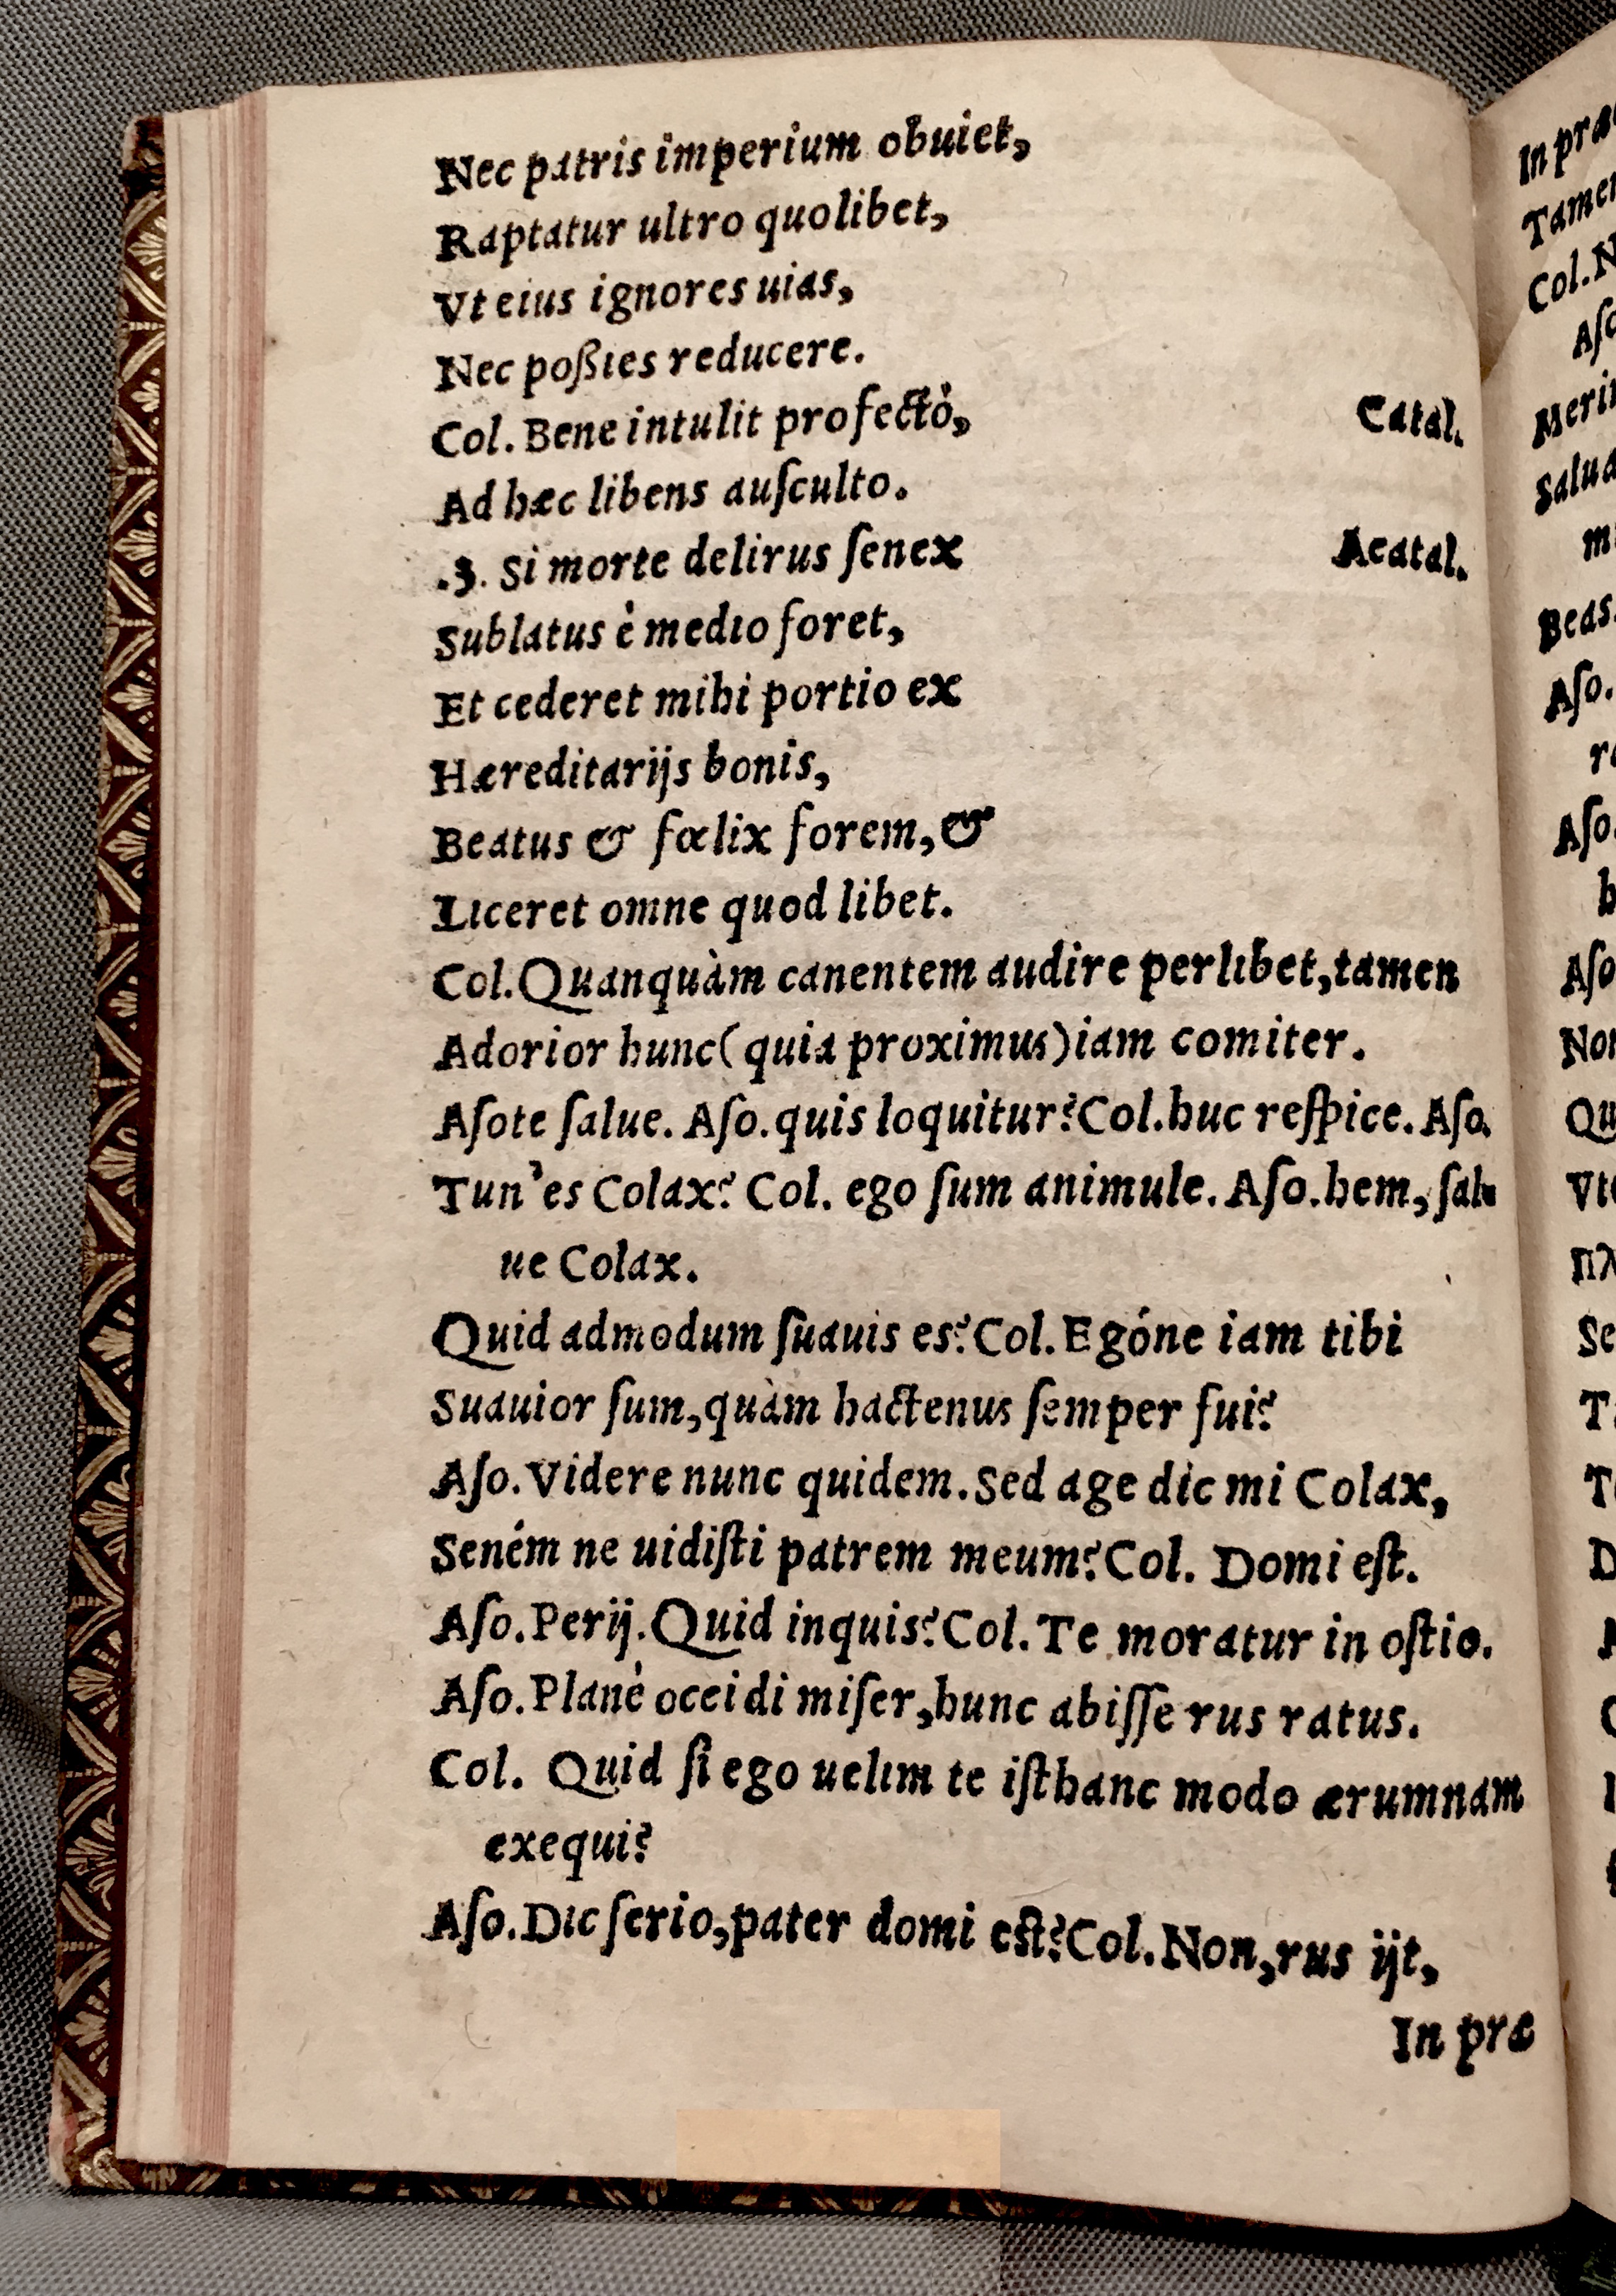 Nec patris imperium obuiet,
Raptatur ultro quolibet,
Vt eius ignores uias,
Nec poßies reducere.
Col. Bene intulit profectò, Catal.
Ad hæc libens auſculto.
.3. Si morte delirus ſenex Acatal.
Sublatus è medio foret,
Et cederet mihi portio ex
Hæreditarijs bonis,
Beatus & fœlix forem, &
Liceret omne quod libet.
Col. Quanquàm canentem audire perlibet, tamen
Adorior hunc (quia proximus) iam comiter.
Aſote ſalue. Aſo. quis loquitur? Col. huc reſpice. Aſo.
Tun' es Colax? Col. ego ſum animule. Aſo. hem, ſal
ue Colax.
Quid admodum ſuauis es? Col. Egóne iam tibi
Suauior ſum, quàm hactenus ſemper fui?
Aſo. Videre nunc quidem. Sed age dic mi Colax,
Seném ne uidiſti patrem meum? Col. Domi eſt.
Aſo. Perij. Quid inquis? Col. Te moratur in oſtio.
Aſo. Planè occidi miſer, hunc abiſſe rus ratus.
Col. Quid ſi ego uelim te iſthanc modo ærumnam
exequi?
Aſo. Dic ſerio, pater domi eſt? Col. Non, rus ijt,
In præ
In præ
Tamen
Col. N
Aſo
Merit
Salua
m
Beas.
Aſo.
r
Aſo.
b
Aſo
Non
Qu
Vt
Πλ
Se
T
T
D